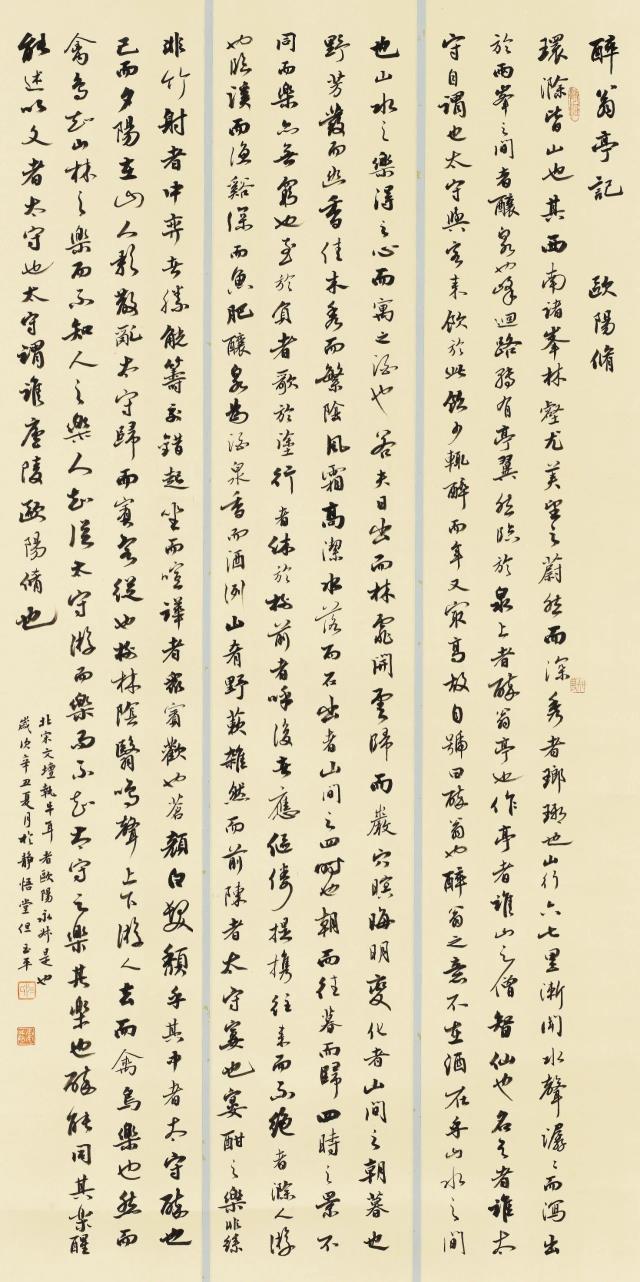 醉翁亭記 歐陽脩
環滁皆山也其西南諸峯林壑尤美望之蔚然而深秀者瑯琊也山行六七里漸聞水聲潺〻而瀉出
於兩峯之間者釀泉也峰迴路轉有亭翼然臨於泉上者醉翁亭也作亭者誰山之僧智仙也名之者誰太
守自謂也太守與客来飲於此飲少輒醉而年又㝡高故自號曰醉翁也醉翁之意不在酒在乎山水之間
也山水之樂得之心而寓之酒也若夫日出而林霏開雲歸而巖穴暝晦明變化者山間之朝暮也
野芳發而幽香佳木秀而繁陰風霜高潔水落而石出者山間之四時也朝而往暮而歸四時之景不
同而樂亦無窮也至於負者歌於塗行者休於樹前者呼後者應傴僂提攜往来而不絶者滁人游
也臨谿而漁谿深而魚肥釀泉為酒泉香而酒洌山肴野蔌雜然而前陳者太守宴也宴酣之樂非絲
非竹射者中弈者勝觥籌交錯起坐而喧譁者衆賓歡也蒼顏白髮頽乎其中者太守醉也
已而夕陽在山人影散亂太守歸而賓客從也樹林陰翳鳴聲上下游人去而禽鳥樂也然而
禽鳥知山林之樂而不知人之樂人知從太守游而樂而不知太守之樂其樂也醉能同其樂醒
能述以文者太守也太守謂誰廬陵歐陽脩也
北宋文壇執牛耳者歐陽永叔是也
歲次辛丑夏月於靜悟堂但玉平